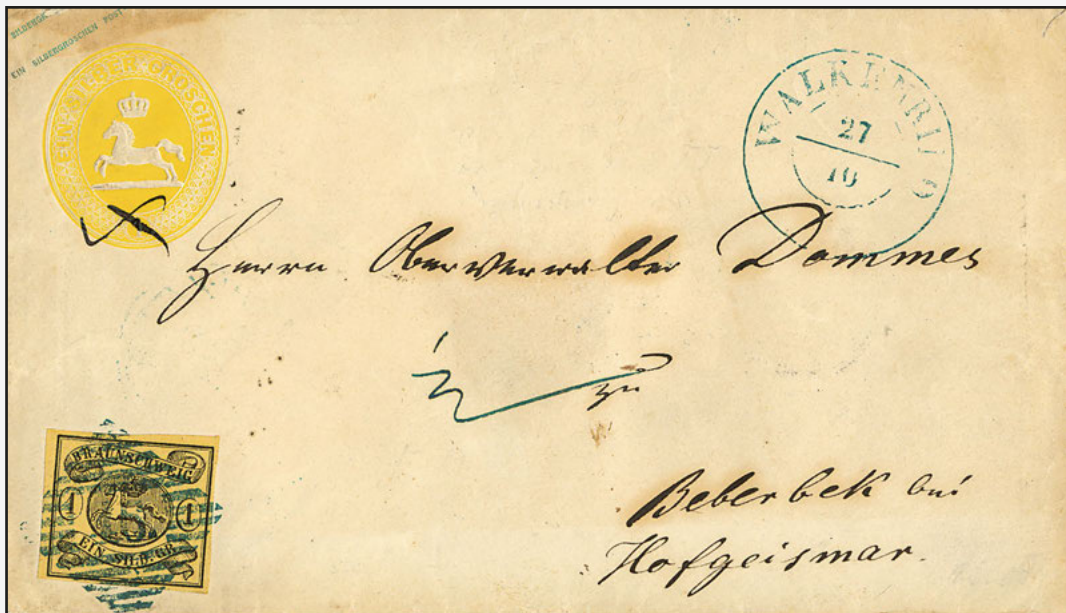 EIN SILBERGROSCHEN POST
EIN SILBER GROSCHEN
1
WALKENRIED
27
10
Herrn Oberverwalter Dommes
zu
Beberbek bei
Hofgeismar.
BRAUNSCHWEIG
1 5 1
EIN SILB.GR.